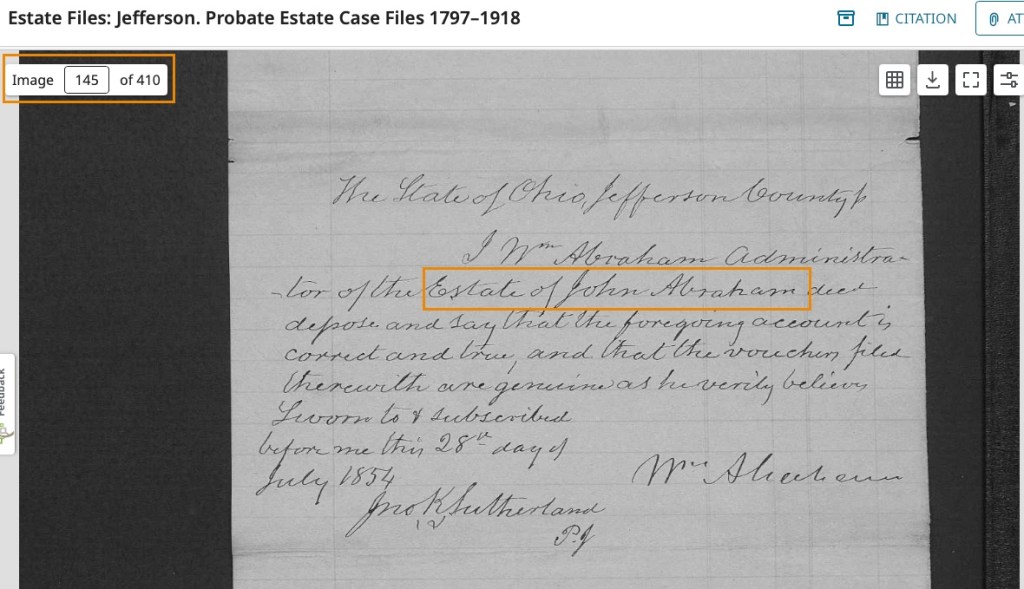 Estate Files: Jefferson. Probate Estate Case Files 1797–1918
CITATION
AT
Image 145 of 410
The State of Ohio, Jefferson County ss
I Wm Abraham Administra-
-tor of the Estate of John Abraham decd
depose and say that the foregoing account is
correct and true, and that the vouchers filed
therewith are genuine as he verily believes
Sworn to & subscribed
before me this 28th day of
July 1854
Wm Abraham
Jno K Sutherland
P.J
Feedback